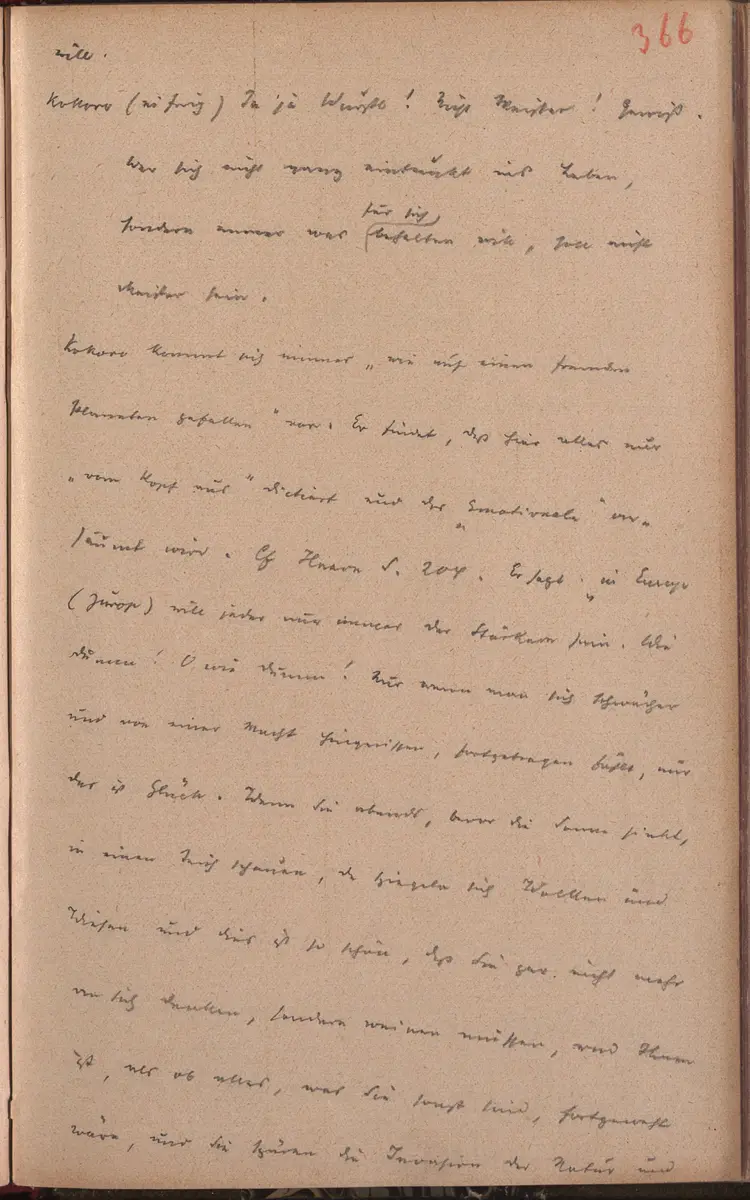 366
will.
Kokoro (eifrig) Ja ja Wurstl! Nicht Meister! Gewiß.
Wer sich nicht ganz eintaucht ins Leben,
für sich
sondern immer was behalten will, soll nicht
Meister sein.
Kokoro kommt sich immer „wie auf einen fremden
Planeten gefallen" vor. Er findet, daß hier alles nur
„vom Kopf aus" dictiert und das „Emotionale" ver-
säumt wird. Cf Hearn S. 204. Er sagt: „in Europa
(Jurop) will jeder nur immer der Stärkere sein. Wie
dumm! O wie dumm! Nur wenn man sich schwächer
und von einer Macht hingerissen, fortgetragen fühlt, nur
das ist Glück. Wenn Sie abends, bevor die Sonne sinkt,
in einen Teich schauen, da spiegeln sich Wolken und
Wiesen und dies ist so schön, daß Sie gar nicht mehr
an sich denken, sondern weinen müssen, und Ihnen
ist, als ob alles, was Sie sonst sind, fortgeweht
wäre, und Sie spüren die Invasion der Natur und